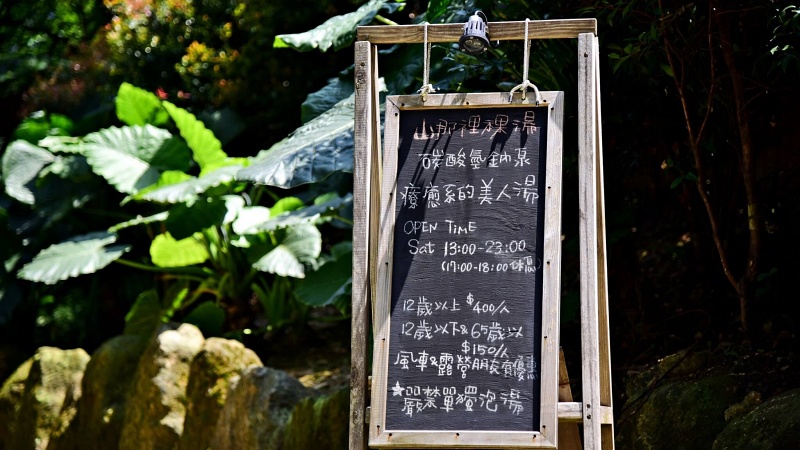 山那裡裸湯
碳酸氫鈉泉
療癒系的美人湯
OPEN TIME
Sat 13:00-23:00
(17:00-18:00休息)
12歲以上 $400/人
12歲以下&65歲以
$150/人
風車&露營朋友有優惠
★嚴禁單獨泡湯